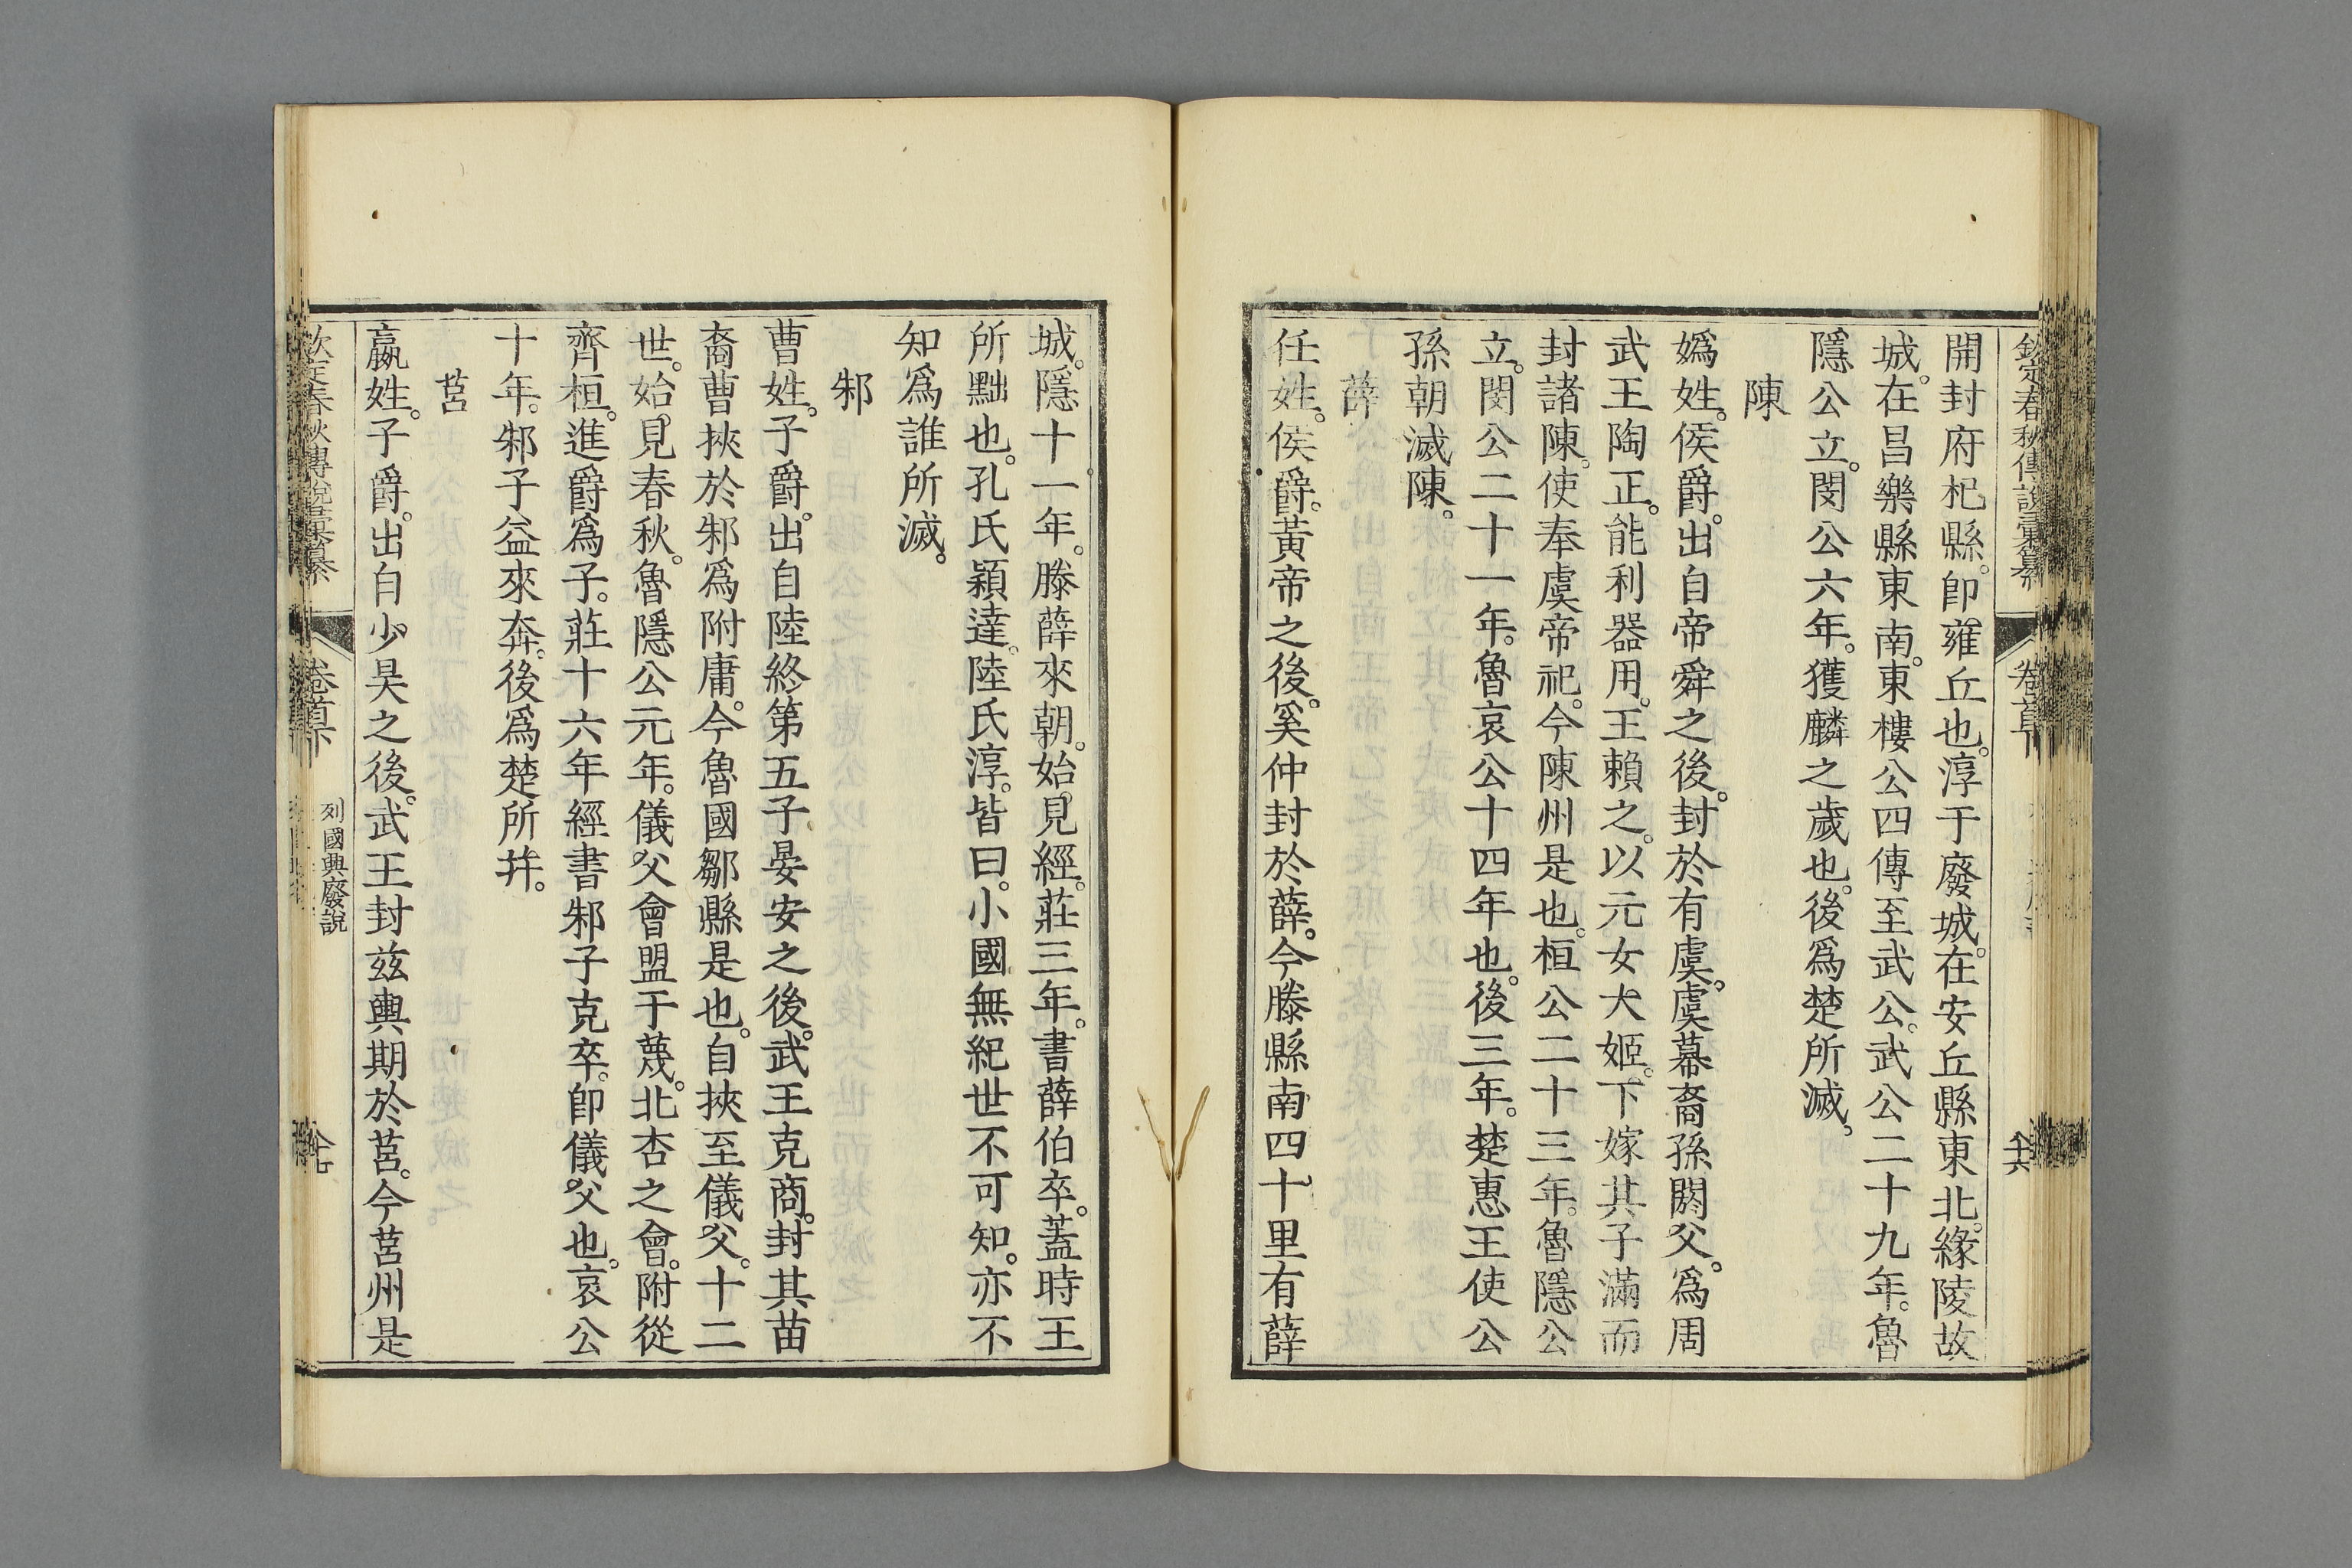 欽定春秋傳說彙纂 卷首下
開封府杞縣。卽雍丘也。淳于廢城。在安丘縣東北。緣陵故
城。在昌樂縣東南。東樓公四傳至武公。武公二十九年。魯
隱公立。閔公六年。獲麟之歲也。後爲楚所滅。
陳
嬀姓。侯爵。出自帝舜之後。封於有虞。虞幕裔孫閼父。爲周
武王陶正。能利器用。王賴之。以元女大姬。下嫁其子滿而
封諸陳。使奉虞帝祀。今陳州是也。桓公二十三年。魯隱公
立。閔公二十一年。魯哀公十四年也。後三年。楚惠王使公
孫朝滅陳。
薛
任姓。侯爵。黃帝之後。奚仲封於薛。今滕縣南四十里有薛
城。隱十一年。滕薛來朝。始見經。莊三年。書薛伯卒。蓋時王
所黜也。孔氏穎達。陸氏淳。皆曰。小國無紀世不可知。亦不
知爲誰所滅。
邾
曹姓。子爵。出自陸終第五子晏安之後。武王克商。封其苗
裔曹挾於邾爲附庸。今魯國鄒縣是也。自挾至儀父。十二
世。始見春秋。魯隱公元年。儀父會盟于蔑。北杏之會。附從
齊桓。進爵爲子。莊十六年經書邾子克卒。卽儀父也。哀公
十年。邾子益來奔。後爲楚所幷。
莒
嬴姓。子爵。出自少昊之後。武王封兹輿期於莒。今莒州是
欽定春秋傳說彙纂 卷首下 列國興廢說